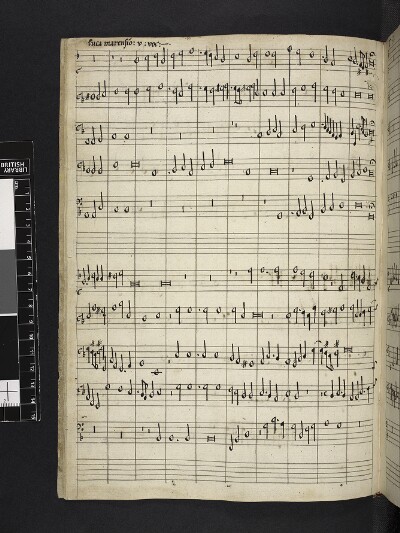 Luca marensio: v: voc:
LIBRARY
BRITISH